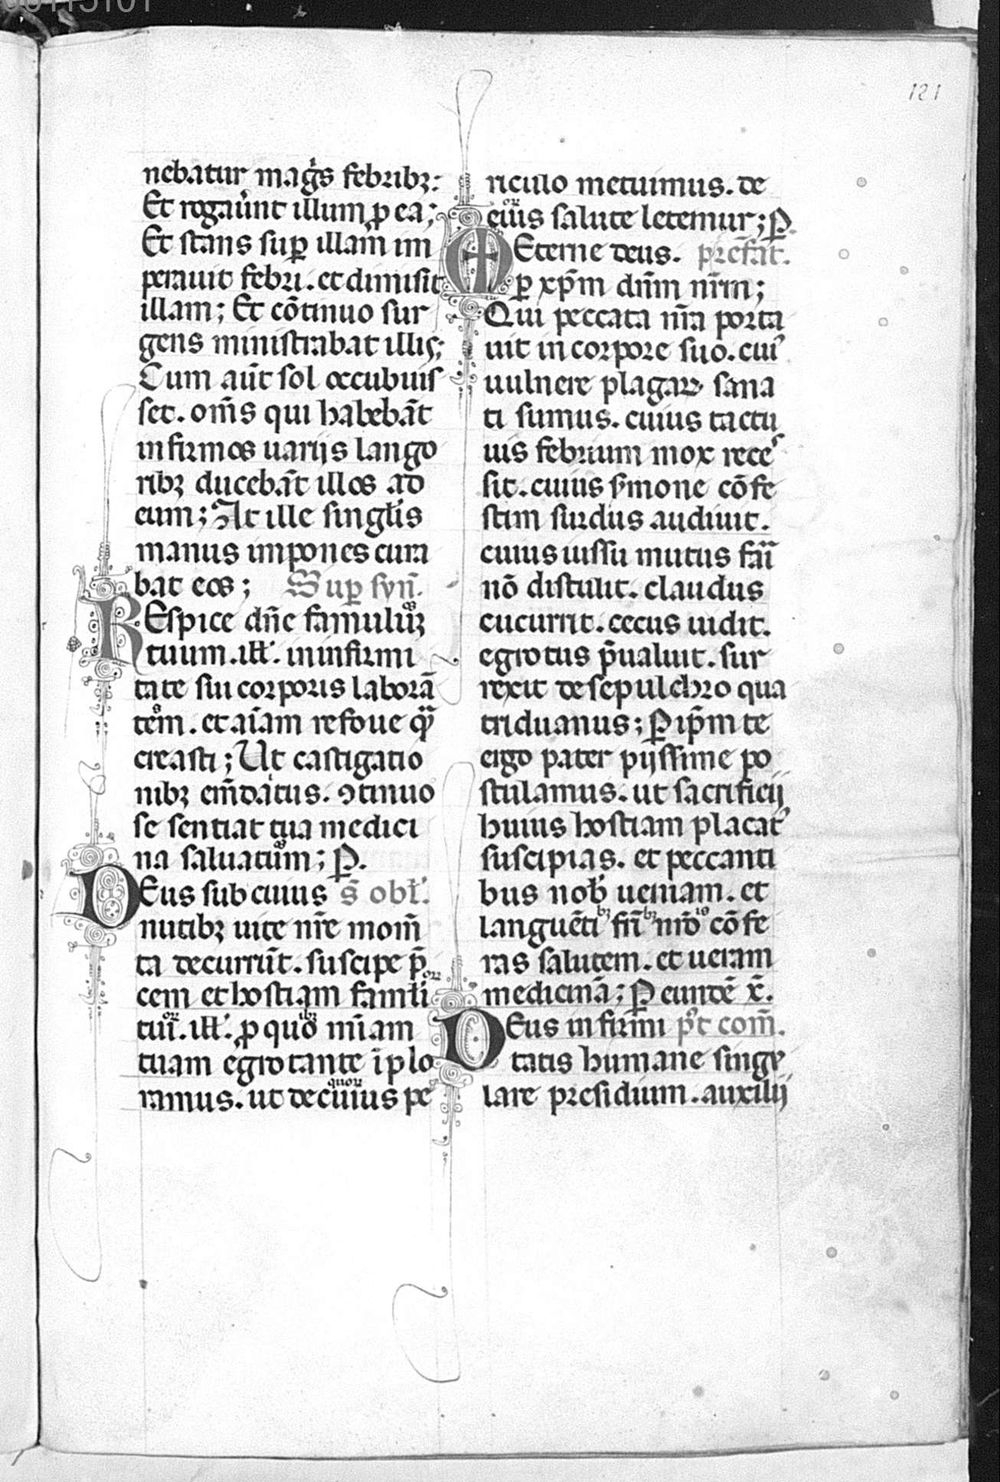 121
nebatur mag̓s febribꝫ:
Et rogauͥnt illum ꝓ ea;
Et stans suꝑ illam im
perauit febri. et dimisit
illam; Et cõtinuo sur
gens ministrabat illis;
Cum aũt sol occubuis
set. om̃s qui habebãt
infirmos uariis lango
ribꝫ ducebãt illos ad
eum; At ille singlis̃
manus impones cura
bat eos; Suꝑ syñ.
REspice dñe famuluꝫ
tuum .ill̃. in infirmi
tate sui corporis laborã
tem. et aĩam refoue qͣ̃
creasti; Ut castigatio
nibꝫ em̃datus. ꝯtinuo
se sentiat tua medici
na saluatum; P.
DEus sub cuius s̃ obl̃.
nutibꝫ uite nr̃e mom̃
ta decurrũt. suscipe p̃
cem et hostiam famli
tui. ill̃. ꝓ quo mĩam
tuam egrotante ĩplo
ramus. ut de cuius pe
riculo metuimus. de
eius salute letemur; P.
Eterne deus. prefat̃.
ꝑ xp̃m dñm nr̃m;
Qui peccata nr̃a porta
uit in corpore suo. cuiꝰ
uulnere plagaꝝ sana
ti sumus. cuius tactu
uis febrium mox reces
sit. cuius s̃mone cõfe
stim surdus audiuit.
cuius iussu mutus fari
nõ distulit. claudus
cucurrit. cecus uidit.
egrotus p̃ualuit. sur
rexit de sepulchro qua
triduanus; P ip̃m te
ergo pater piissime po
stulamus. ut sacrificii
huius hostiam placatꝰ
suscipias. et peccanti
bus nob̃ ueniam. et
languẽtibꝫ fr̃ibꝫ nr̃o cõfe
ras salutem. et ueram
medicinã; P eundẽ x̃.
DEus infirmi p̃t com̃.
tatis humane singu
lare presidium. auxilii